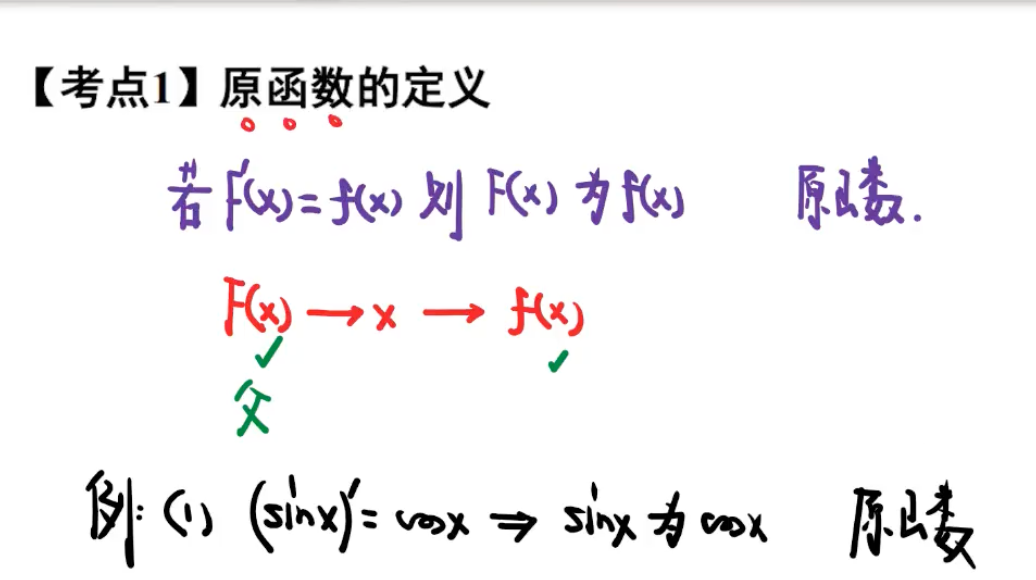 【考点1】原函数的定义
若 F'(x)=f(x) 则 F(x) 为 f(x) 原函数.
F(x) → x → f(x)
✓ ✓
父
例: (1) (sinx)'=cosx ⇒ sinx 为 cosx 原函数